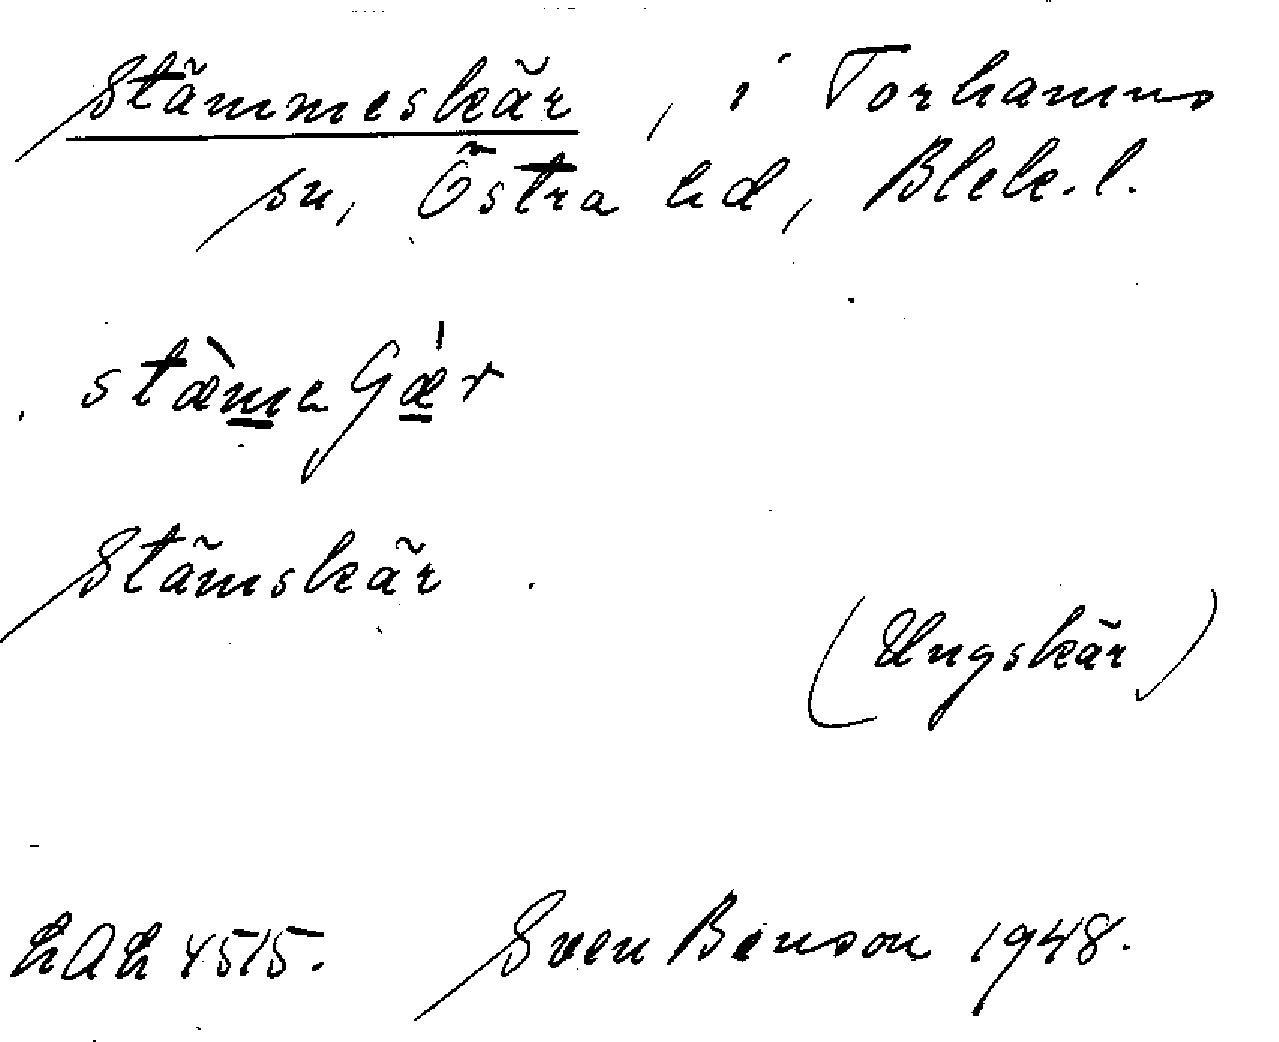 Stämmeskär, i Torhamns
sn, Östra hd, Blek. l.
stæ̀me Gǽr
Stämskär
(Ungskär)
LAL 4515. Sven Benson 1948.